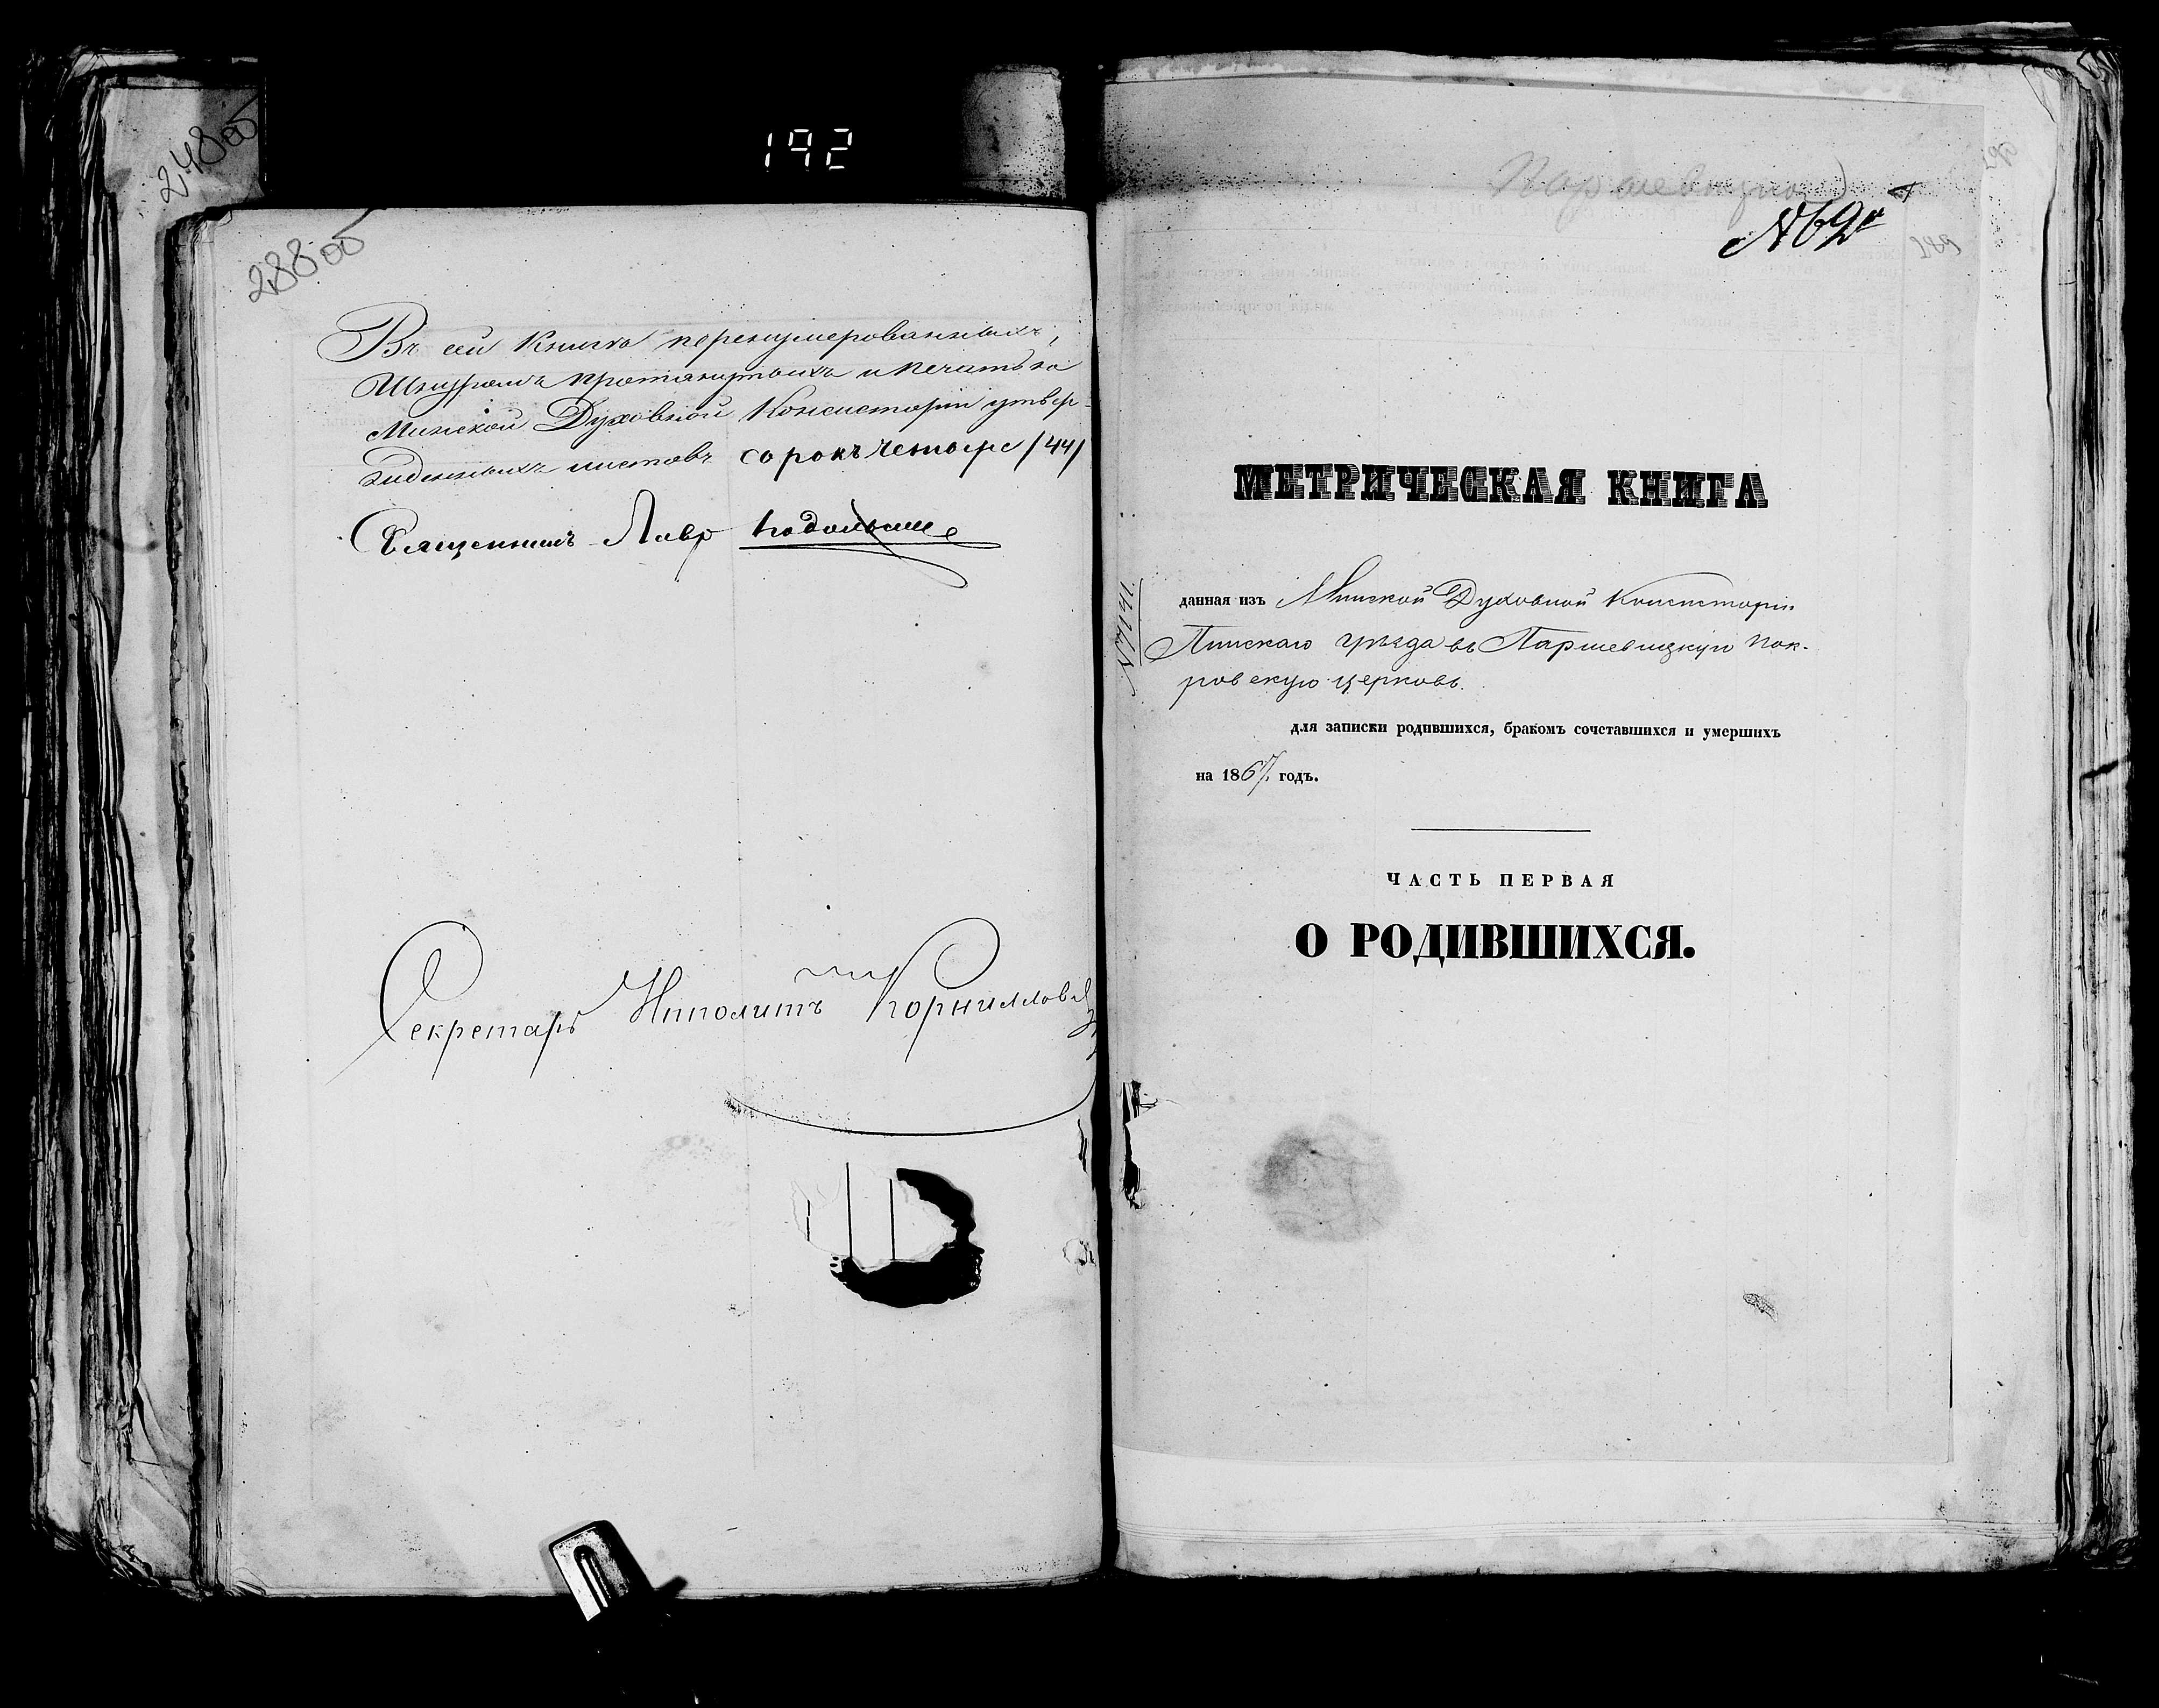 192
248 об
288 об
Въ сей книгѣ перенумерованныхъ,
Шнуромъ протянутыхъ и печатью
Минской Духовной Консисторіи утвер-
жденныхъ листовъ сорокъ четыре /44/
Священникъ Лавръ
Секретарь Ипполитъ Корниловъ
Паршевицкой
№ 69й
289
МЕТРИЧЕСКАЯ КНИГА
данная изъ Минской Духовной Консисторіи
Пинскаго уѣзда въ Паршевицкую Пок-
ровскую церковь.
для записки родившихся, бракомъ сочетавшихся и умершихъ
на 1867 годъ.
ЧАСТЬ ПЕРВАЯ
О РОДИВШИХСЯ.